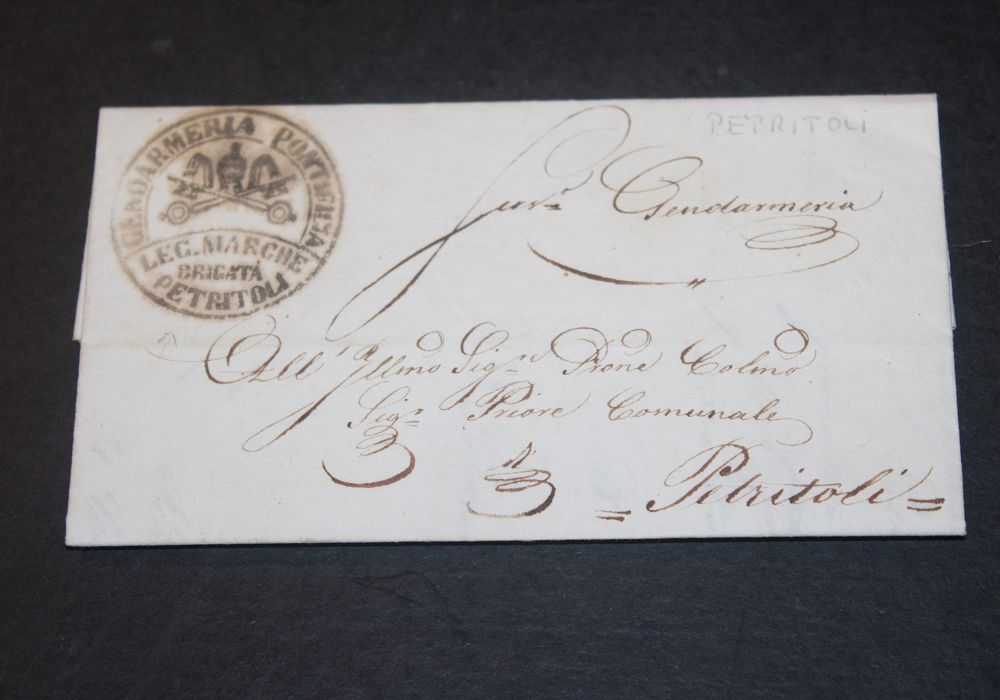 PETRITOLI
GENDARMERIA PONTIFICIA
LEG. MARCHE
BRIGATA
PETRITOLI
Gendarmeria
All' Illmo Sigre Prone Colmo
Sigr Priore Comunale
= Petritoli =